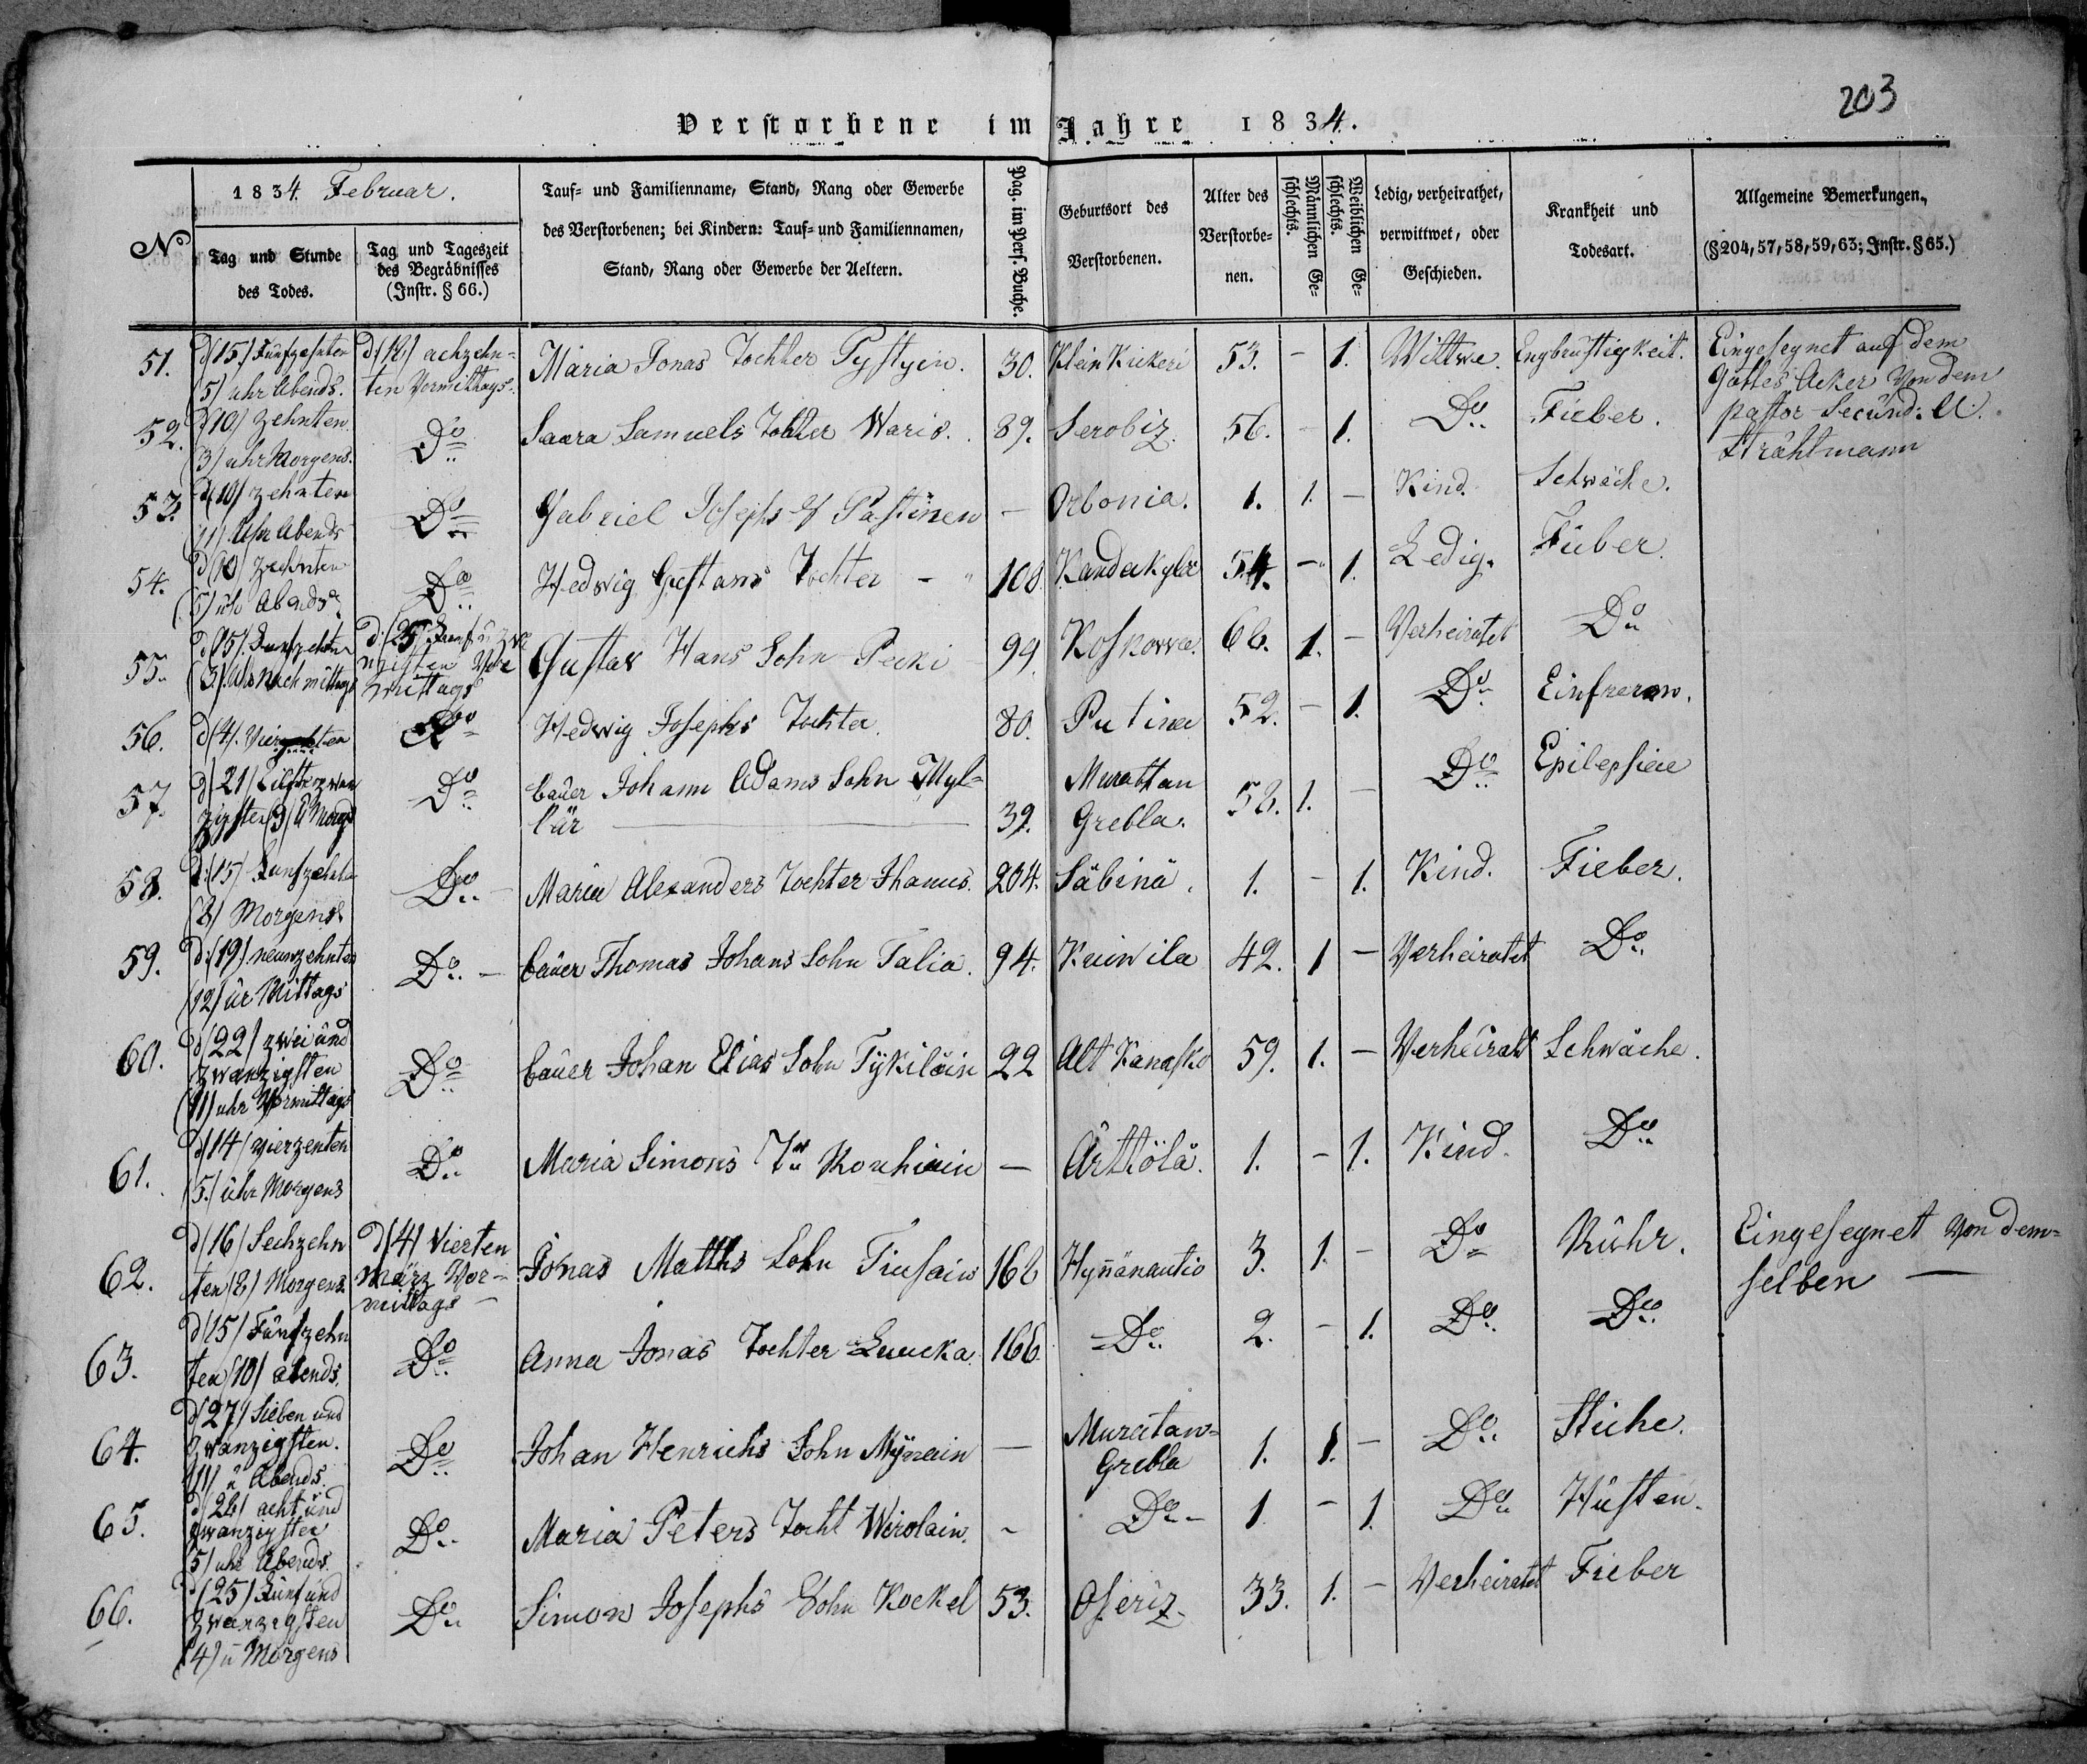 203
Verstorbene im Jahre 1834.
No
1834. Februar.
Tag und Stunde
des Todes.
Tag und Tageszeit
des Begräbnisses
(Instr. § 66.)
Tauf= und Familienname, Stand, Rang oder Gewerbe
des Verstorbenen; bei Kindern: Tauf= und Familiennamen,
Stand, Rang oder Gewerbe der Aeltern.
Pag. im Pers. Buche.
Geburtsort des
Verstorbenen.
Alter des
Verstorbe-
nen.
Männlichen Ge-
schlechts.
Weiblichen Ge-
schlechts.
Ledig, verheirathet,
verwittwet, oder
Geschieden.
Krankheit und
Todesart.
Allgemeine Bemerkungen.
(§204, 57, 58, 59, 63; Instr. §65.)
51. d/15/ Fünfzehnten d:/18/ achzehn= Maria Jonas Tochter Pystyin. 30. Klein Kickeri 53. - 1. Wittwe. Engbrüstigkeit. Eingesegnet auf dem
(5) uhr Abends. ten Vormittags. Gottes Acker von dem
52. d/10/ Zehnten Do Saara Samuels Tochter Waris. 89. Serobiz. 56. - 1. Do Fieber. pastor Secünd:
(3) uhr Morgens. Strählmann
53. d/10/ Zehnten Do Gabriel Josephs Pastinen - Orbonia. 1. 1. - Kind. Schwäche.
11) Uhr Abends
54. d/10/ Zehnten Do Hedwig Gustavs Tochter - 108 54. - 1. Ledig. Fieber.
(5) Abends
55. d/15/ d:/25/ Gustav Hans Sohn Pecki 99. Koskowa. 66. 1. - Verheiratet Do
(3) Uhr Nachmittags Mittags
56. d/4/. Do Hedwig Josephs Tochter. 80. Putina 52. - 1. Do
57. d/21/ Do bauer Johann Adams Sohn Myl= Murattan 58. 1. - Do Epilepsiee
zigsten (9) Morgs lär 39. Grebla.
58. d:/15/ Do - Maria Alexanders Tochter Ihanus. 204. Säbinä. 1. - 1. Kind. Fieber.
(8) Morgens
59. d:/19/ neunzehnten Do - bauer Thomas Johans Sohn Talia. 94. Keinwila 42. 1 - Verheiratet Do
(12) ür Mittags
60. d/22/ zwei ünd Do bauer Johan Elias Sohn Tykiläin 22 Alt Kanasko 59. 1. - Verheirat Schwäche.
zwanzigsten
(11) uhr Vormittags
61. d/14/ vierzenten Do Maria Simons - Ärttölä. 1. - 1. Kind. Do
(5.) ühr Morgens
62. d/16/ Sechzehn d/4/ Vierten Jonas Matths Sohn 166 Hynänautio 3. 1. - Do Rühr. Eingesegnet von dem=
ten (8) Morgens. März Vor= selben -
mittags -
63. d/15/ Fünfzehn Do Anna Jonas Tochter Luucka. 166. Do 2. - 1. Do Do
ten (10) abends.
64. d/27/ Sieben und Do Johan Henrichs Sohn Mynain - Muratan= 1. 1. - Do Stiche.
zwanzigsten. Grebla
11) ü Abends.
65. d/28/ acht ünd Do Maria Peters Tocht Wirolain. - Do - 1. - 1. Do Hüsten.
zwanzigsten
5) uhr Abends
66. d/25/ Fünf ünd Do Simon Josephs Sohn Kockel 53. Oseriz. 33. 1. - Verheiratet Fieber
zwanzigsten
(4) ü Morgens